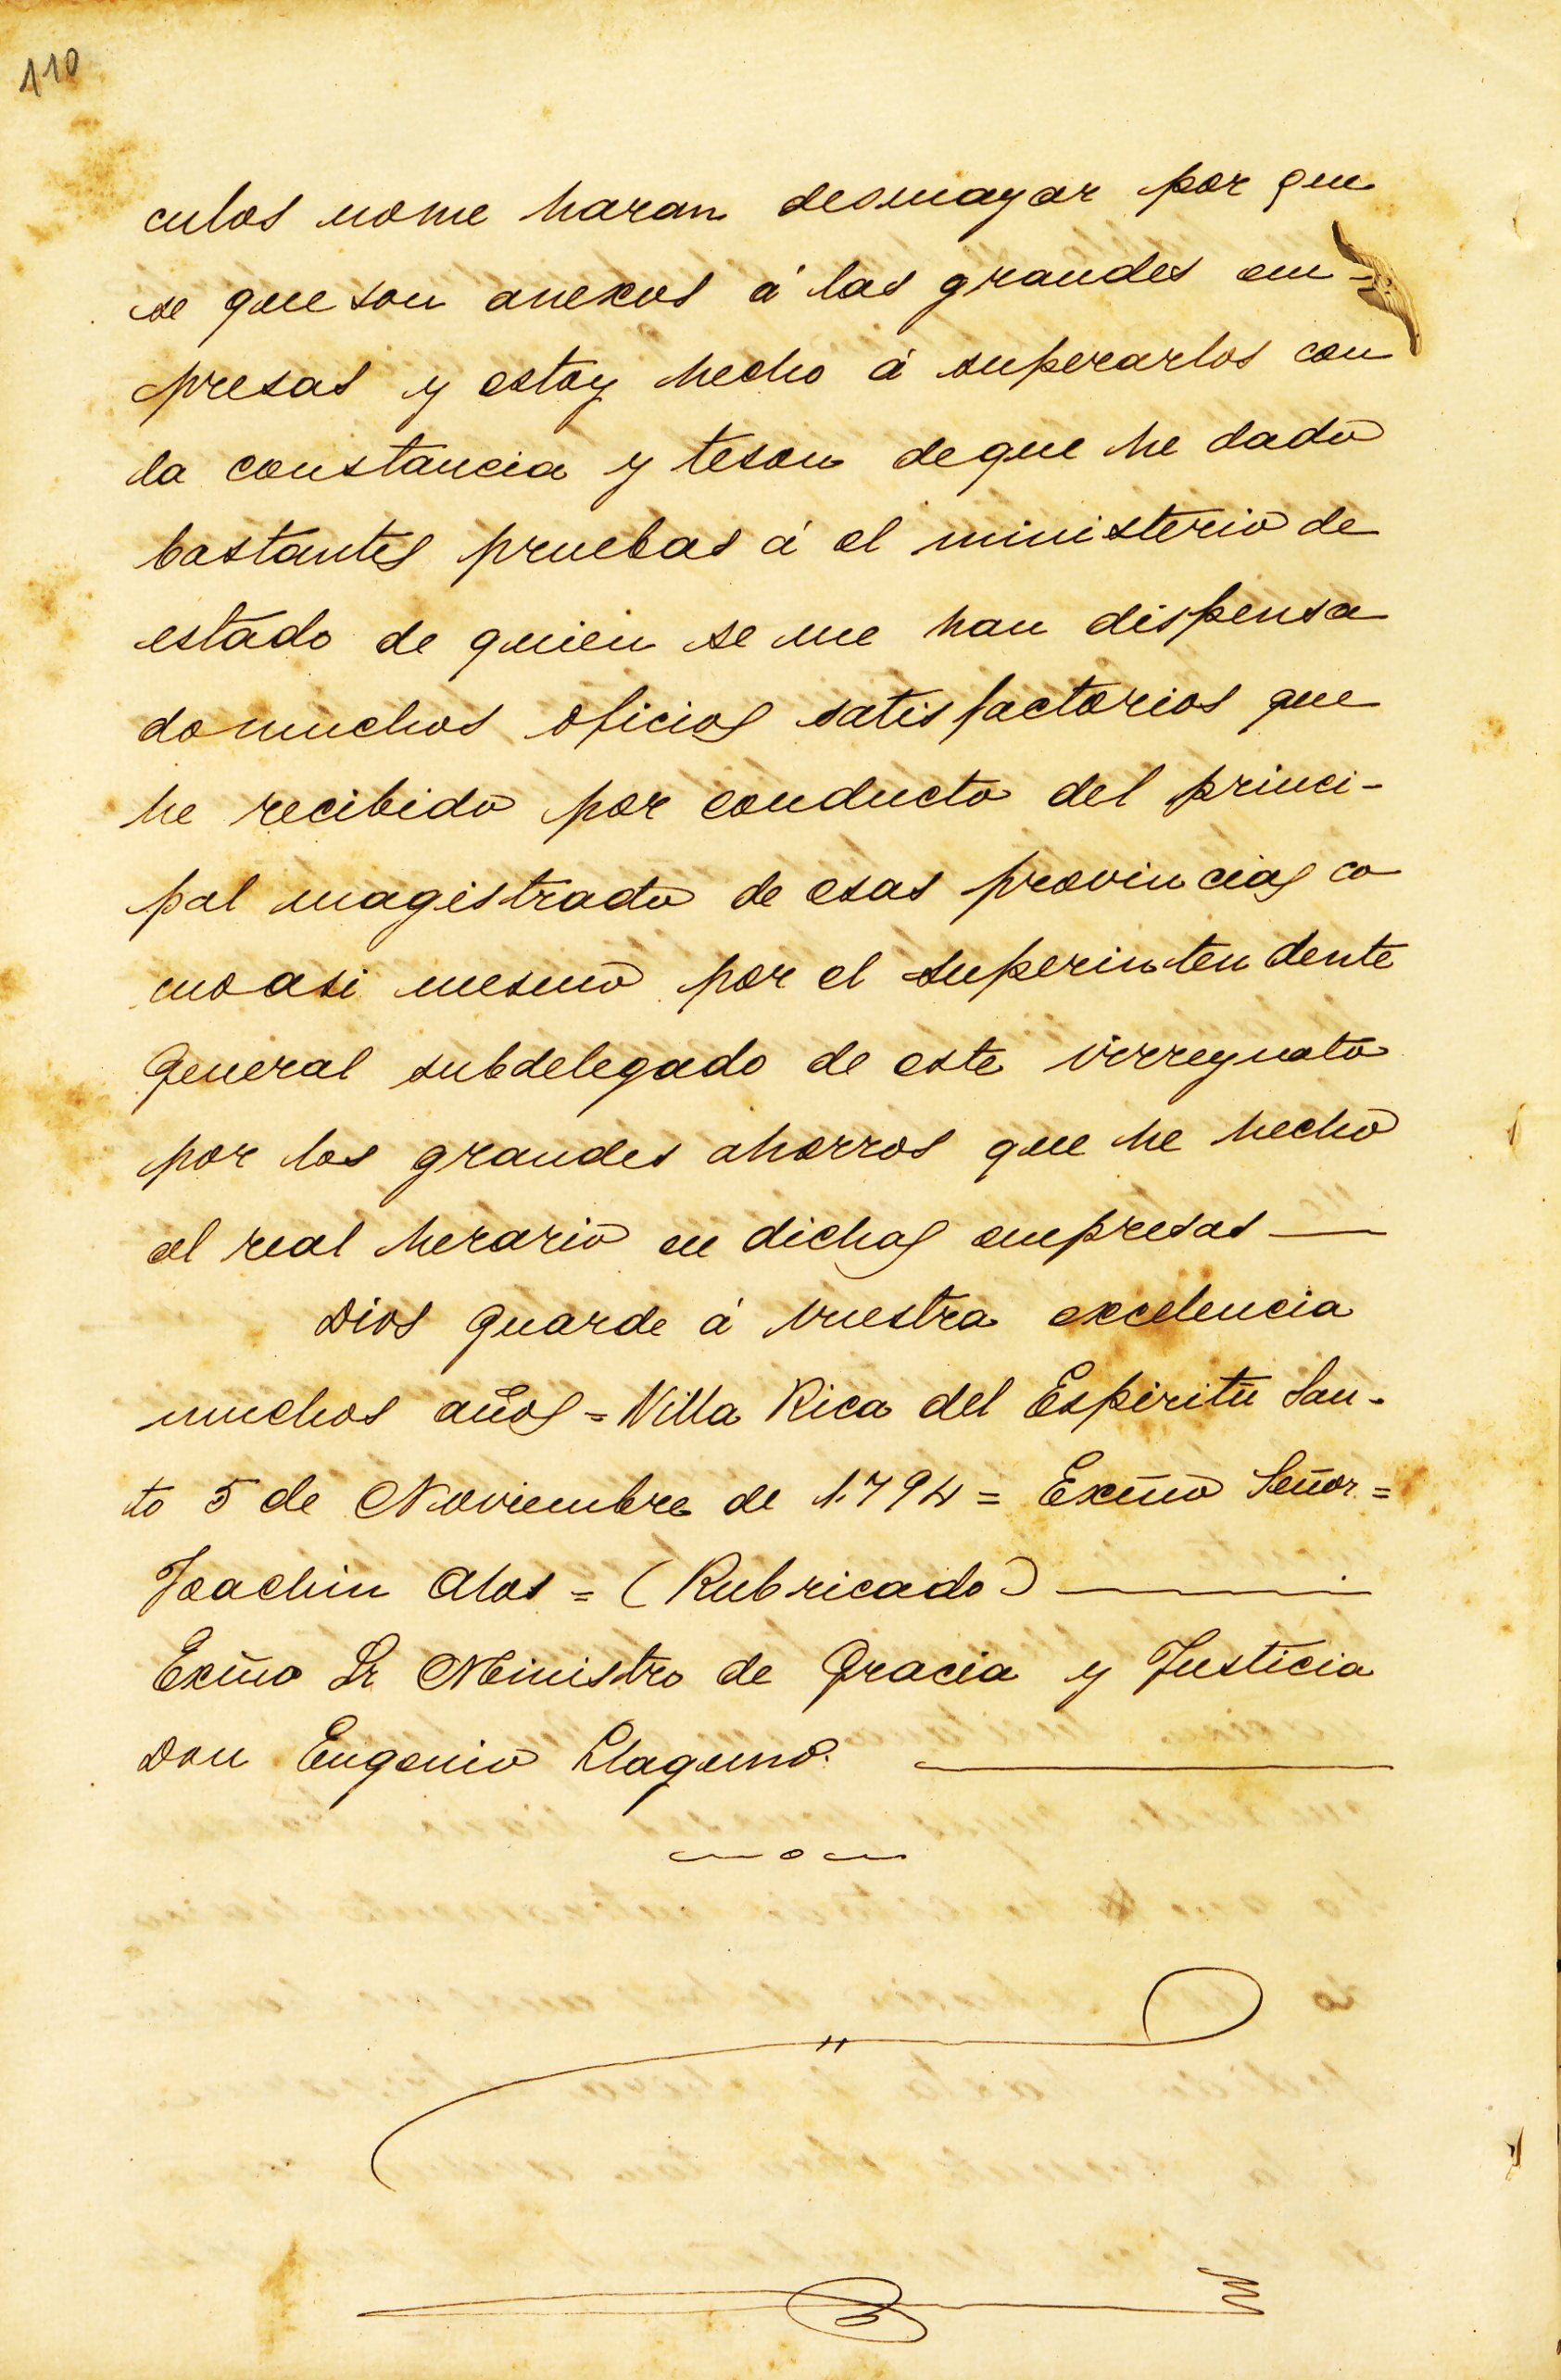 110
culos nome haran desmayar por que
se que son anexos á las grandes em-
presas y estoy hecho á superarlos con
la constancia y teson deque he dado
bastantes pruebas á el ministerio de
estado de quien se me han dispensa
do muchos oficios satisfactorios que
he recibido por conducto del princi-
pal magistrado de esas provincias co
mo asi mesmo por el superintendente
General subdelegado de este virreynato
por los grandes ahorros que he hecho
al real herario en dichas empresas —
Dios guarde á vuestra excelencia
muchos años = Villa Rica del Espiritu San-
to 5 de Noviembre de 1.794 = Exm̃o Señor =
Joachin Alos = (Rubricado) —
Exm̃o Sr Ministro de Gracia y Justicia
Don Eugenio Llaguno. —